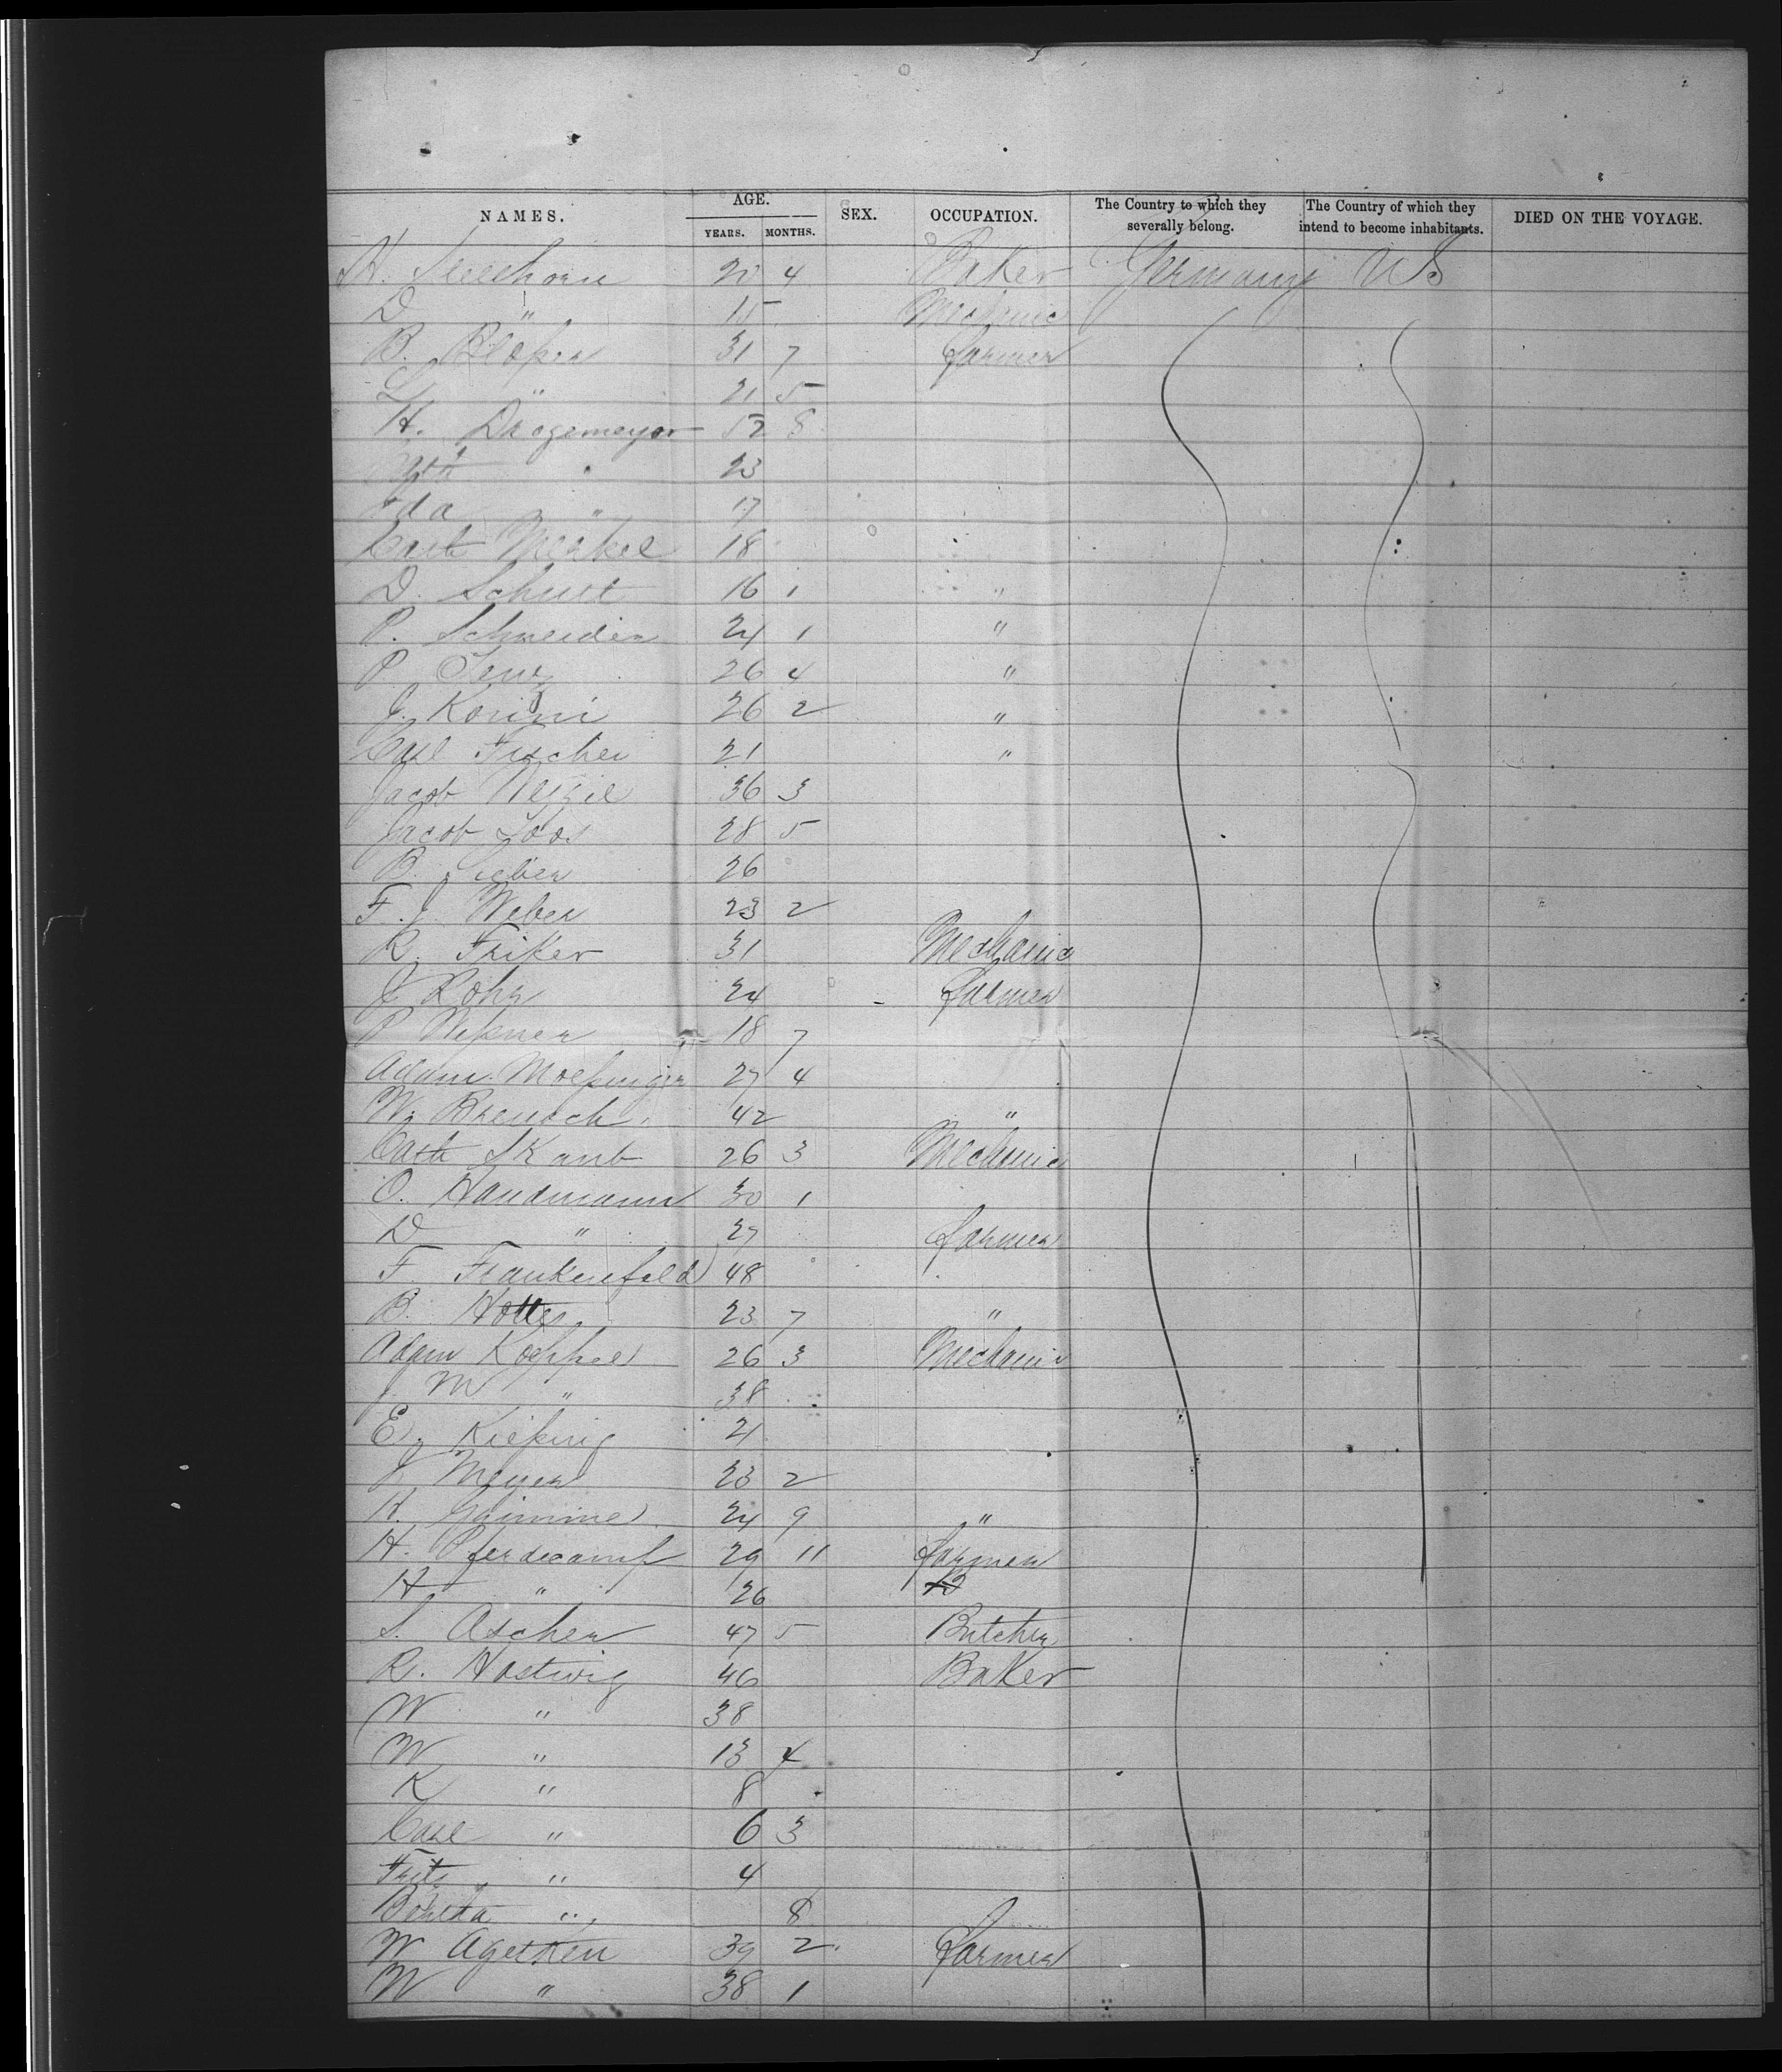 NAMES. AGE. YEARS. MONTHS. SEX. OCCUPATION. The Country to which they severally belong. The Country of which they intend to become inhabitants. DIED ON THE VOYAGE.
H. Seelhorn 20 4 Baker Germany US
D " 15 Mechanic
B. Klöper 31 7 farmer
L " 21 5
H. Drogemeyer 52 8
23
Ida " 17
Cath Merkel 18
D. Schult 16 1 "
P. Schneider 24 1 "
P. 26 4 "
J. Korini 26 2 "
Carl Fischer 21 "
Jacob 36 3
Jacob Loos 28 5
B. Sieber 26
F. J. Weber 23 2
R. Friker 31 Mechanic
J Rohr 24 farmer
P Weßner 18 7
Adam Moeßinger 27 4
W. 42 "
Cath Skamb 26 3 Mechanic
O. Handmann 30 1
D " 27 farmer
F. Frankenfeld 48
B. Hottes 23 7 "
Adam Koeppel 26 3 Mechanic
J. M " 38
E. Kießing 21
J Meyer 23 2
H. Grimme 24 9 "
H. Pferdecamp 29 11 farmer
H " 26 B
S. Ascher 47 5 Butcher
R. Hartwig 46 Baker
W " 38
W " 13 4
K " 8
Carl " 6 3
Fritz " 4
" 8
W Agetken 39 2 farmer
W " 38 1